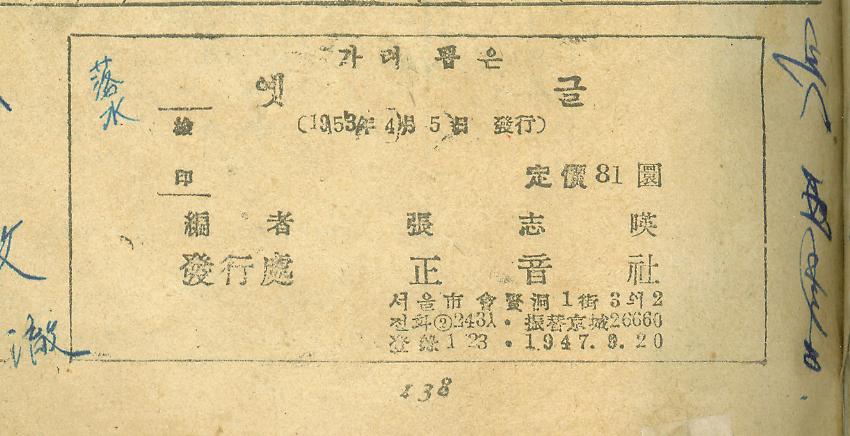 가려 뽑은
옛 글
(1953年 4月 5日 發行)
檢
印
定價 81 圜
編者 張志暎
發行處 正音社
서울市會賢洞1街3의2
전화②2431·振替京城26660
登錄123·1947.9.20
138
落水
文
澈